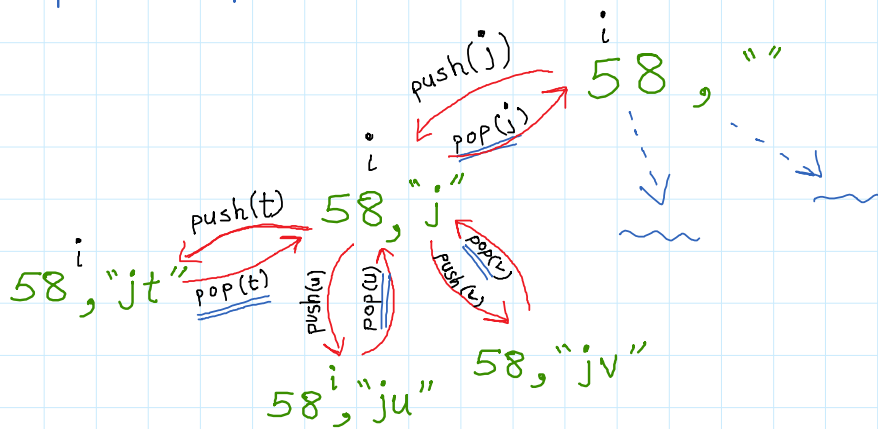 i
58, ""
push(j)
pop(j)
i
58, "j"
push(t)
pop(t)
i
58, "jt"
push(u)
pop(u)
pop(v)
push(v)
58, "jv"
i
58, "ju"